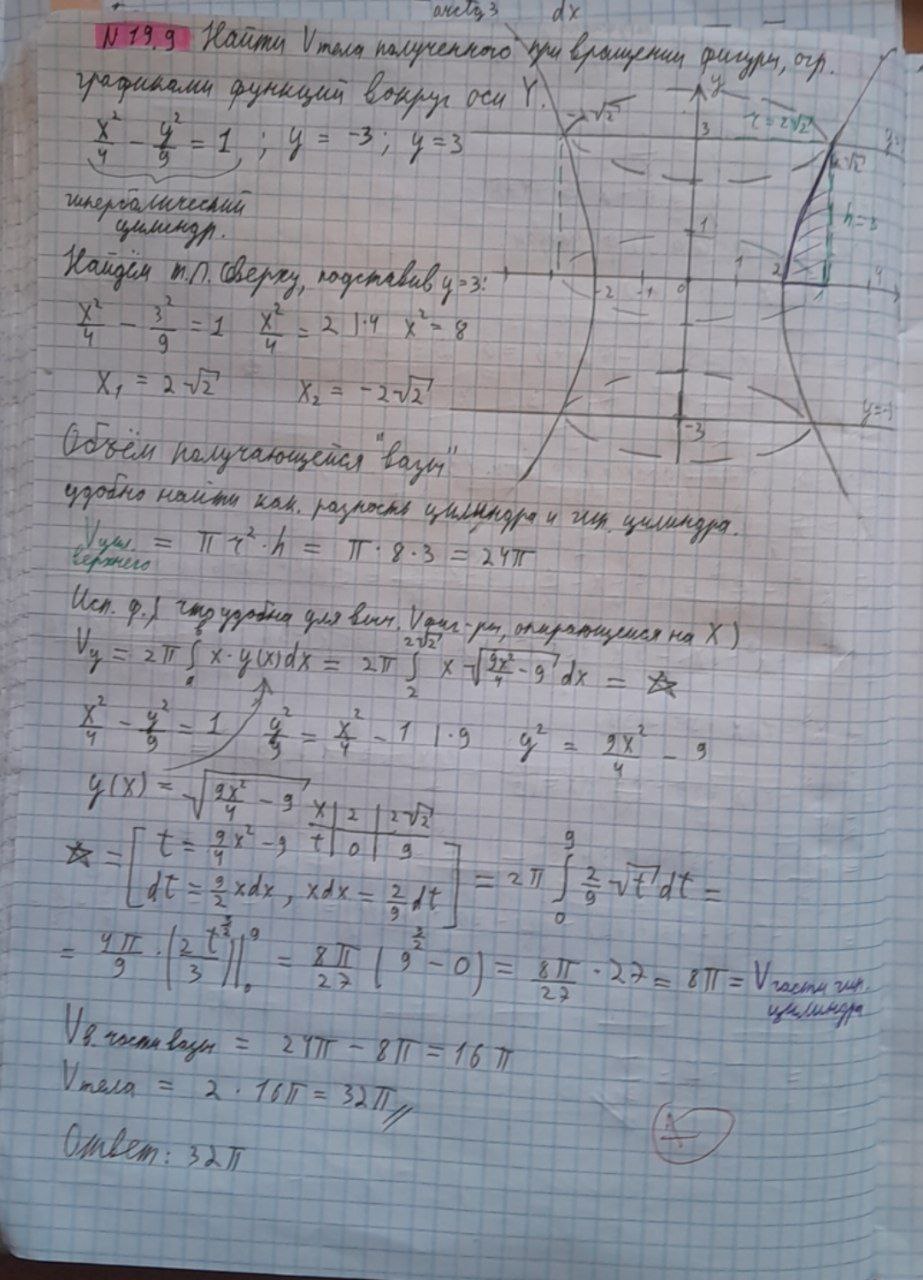 arctg 3 dx
N 19.9 Найти V тела полученного при вращении фигуры, огр.
графиками функций вокруг оси Y.
x²/4 - y²/9 = 1 ; y = -3 ; y = 3
гиперболический
цилиндр.
Найдём т.П. сверху, подставив y=3:
x²/4 - 3²/9 = 1 x²/4 = 2 |·4 x² = 8
x₁ = 2√2 x₂ = -2√2
y
-2√2
3
r = 2√2
2√2
h=3
1
-2 -1 0 1 2 4
-3
y=-3
Объём получающейся "вазы"
удобно найти как. разность цилиндра и гип. цилиндра.
V цил. верхнего = π r²·h = π·8·3 = 24π
Исп. ф., что удобна для выч. V фиг-ры, опирающейся на X)
V_y = 2π ∫_a^b x·y(x)dx = 2π ∫_2^{2√2} x √(9x²/4 - 9) dx = ☆
x²/4 - y²/9 = 1 y²/9 = x²/4 - 1 |·9 y² = 9x²/4 - 9
y(x) = √(9x²/4 - 9)
x | 2 | 2√2
t | 0 | 9
☆ = [ t = 9/4 x² - 9
dt = 9/2 xdx, xdx = 2/9 dt ] = 2π ∫_0^9 2/9 √t dt =
= 4π/9 · (2 t^{3/2}/3)|_0^9 = 8π/27 (9^{3/2} - 0) = 8π/27 · 27 = 8π = V части гип. цилиндра
V в. части вазы = 24π - 8π = 16π
V тела = 2·16π = 32π //
Ответ: 32π